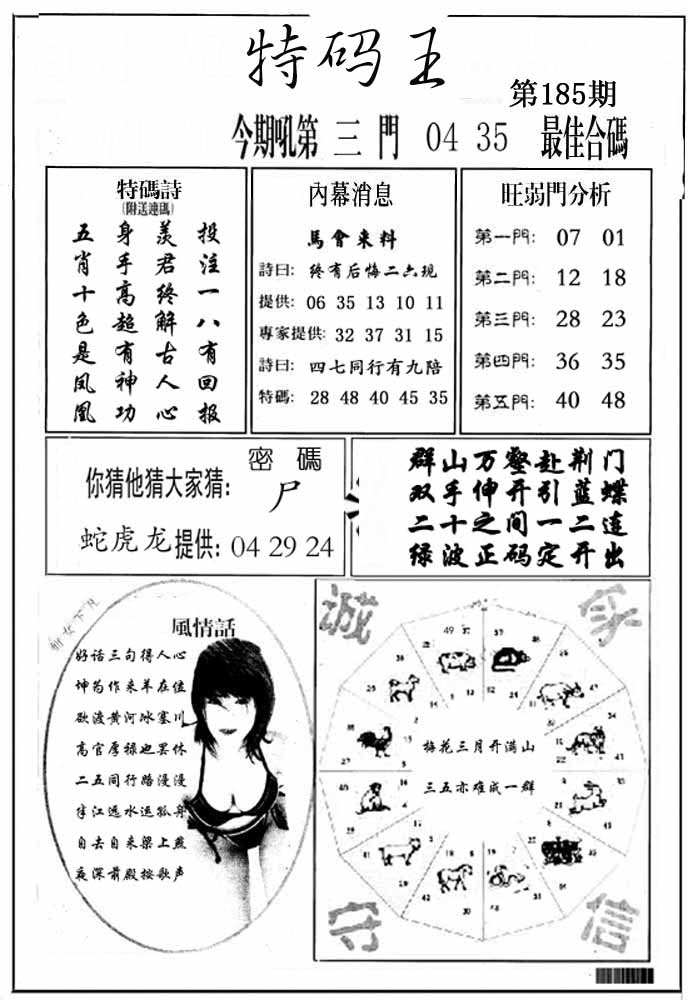 特码王
第185期
今期吼第三門 04 35 最佳合碼
特碼詩
(附送連碼)
投注一八有回报
羡君终解古人心
身手高超有神功
五肖十色是凤凰
內幕消息
馬會来料
詩曰: 终有后悔二六现
提供: 06 35 13 10 11
專家提供: 32 37 31 15
詩曰: 四七同行有九陪
特碼: 28 48 40 45 35
旺弱門分析
第一門: 07 01
第二門: 12 18
第三門: 28 23
第四門: 36 35
第五門: 40 48
密碼
你猜他猜大家猜: 尸
蛇虎龙提供: 04 29 24
群山万壑赴荆门
双手伸开引蓝蝶
二十之间一二连
绿波正码定开出
風情話
好话三句得人心
坤为作来羊在位
欲渡黄河冰塞川
高官厚禄也罢休
二五同行路漫漫
远水运孤舟
自去自来梁上燕
夜深前殿按歌声
诚
守
信
梅花三月开满山
三五亦难成一群